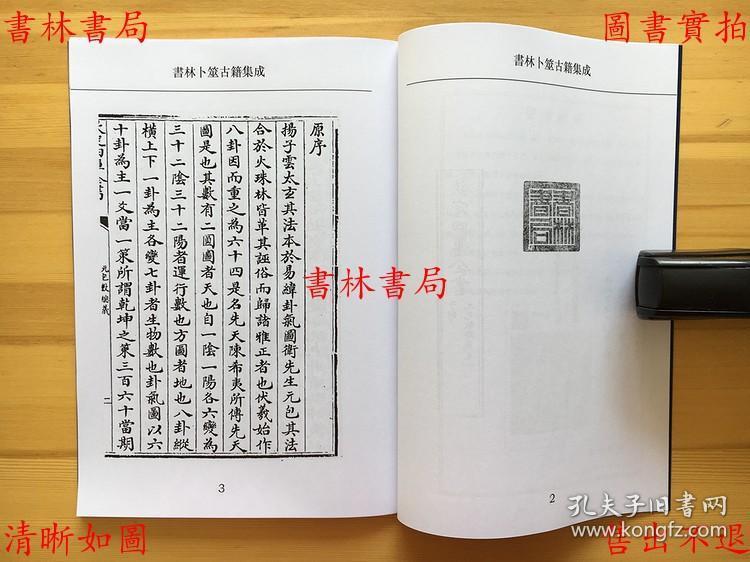 書林書局
圖書實拍
書林卜筮古籍集成
書林卜筮古籍集成
原序
揚子雲太玄其法本於易緯卦氣圖衛先生元包其法
合於火珠林皆革其誣俗而歸諸雅正者也伏羲始作
八卦因而重之為六十四是名先天陳希夷所傳先天
圖是也其數有二圓圖者天也自一陰一陽各六變為
三十二陰三十二陽者運行數也方圖者地也八卦縱
橫上下一卦為主各變七卦者生物數也卦氣圖以六
十卦為主一爻當一策所謂乾坤之策三百六十當期
元包數總義
二
書林書局
書林書局
3
2
清晰如圖
售出不退
孔夫子旧書网
www.kongfz.com